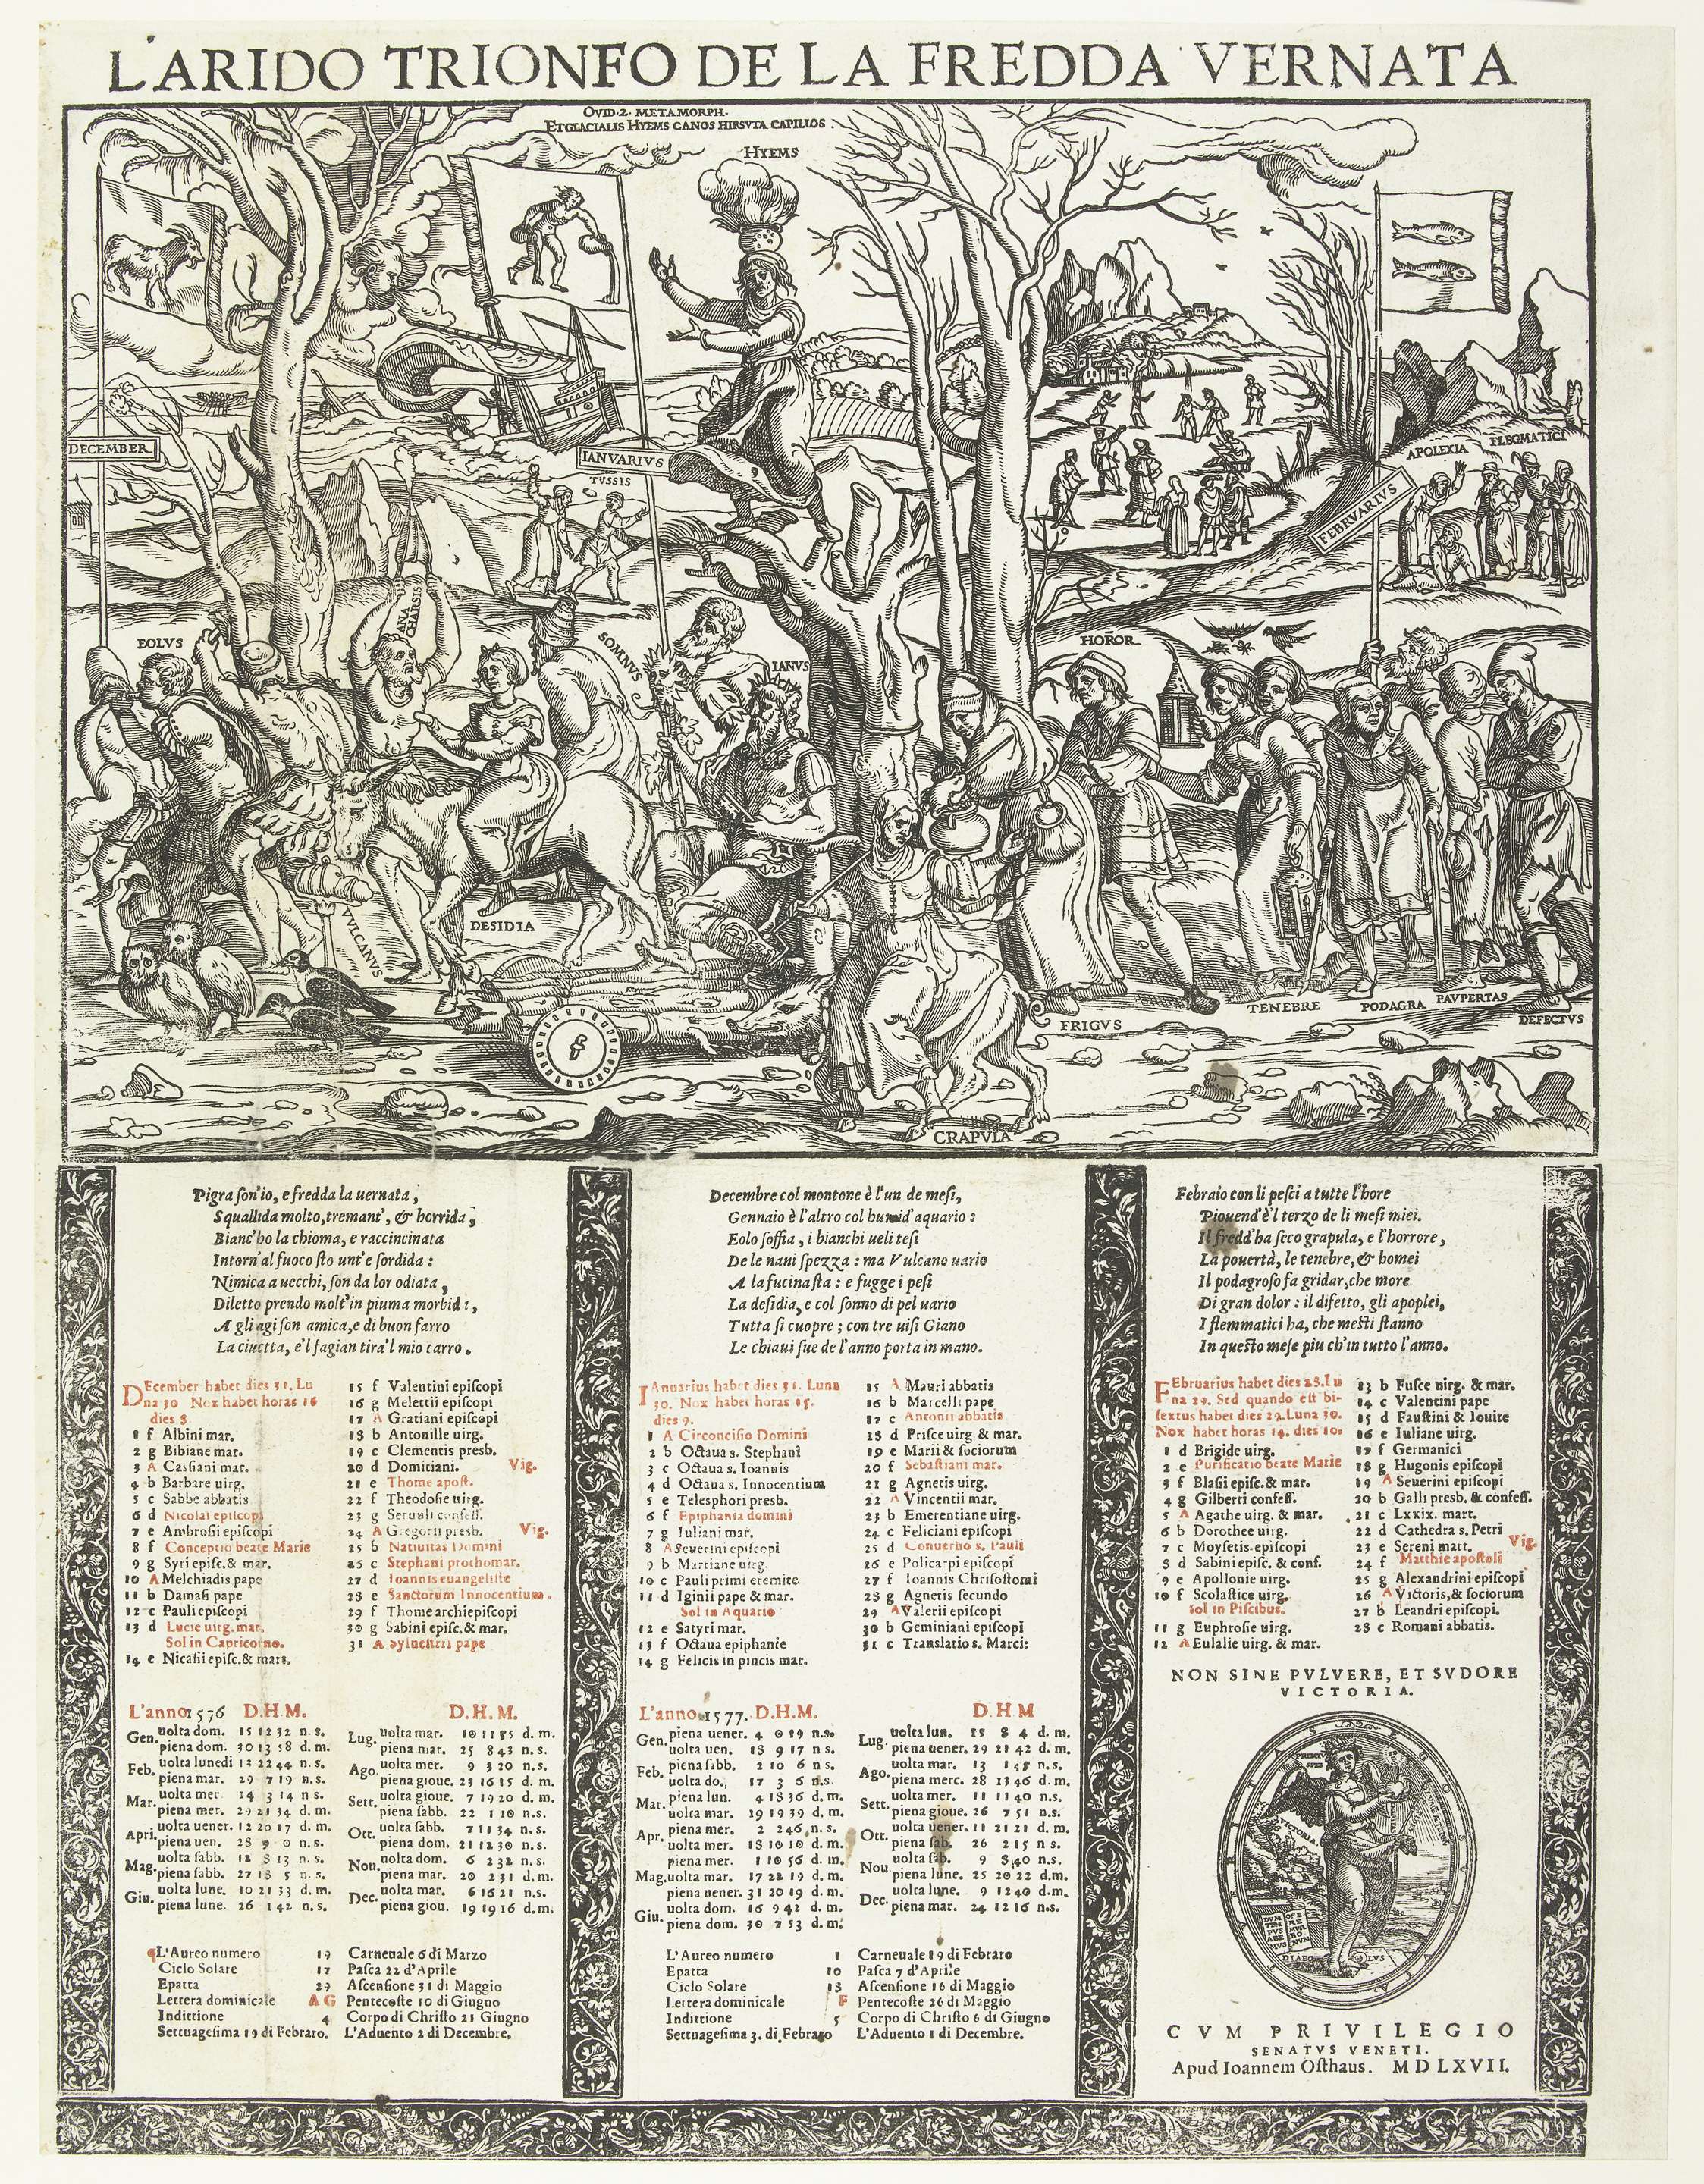 L'ARIDO TRIONFO DE LA FREDDA VERNATA
OVID. 2. METAMORPH.
ET GLACIALIS HYEMS CANOS HIRSVTA CAPILLOS.
HYEMS
DECEMBER
IANVARIVS
TVSSIS
FEBRVARIVS
APOLEXIA
FLEGMATICI
EOLVS
ANACHARSIS
SOMNVS
IANVS
HOROR
VVLCANVS
DESIDIA
FRIGVS
TENEBRE
PODAGRA
PAVPERTAS
DEFECTVS
CRAPVLA
Pigra son'io, e fredda la uernata,
Squallida molto, tremant', & horrida;
Bianc'ho la chioma, e raccincinata
Intorn'al fuoco sto unt'e sordida:
Nimica a uecchi, son da lor odiata,
Diletto prendo molt'in piuma morbida,
A gli agi son amica, e di buon farro
La ciuetta, e'l fagian tira'l mio carro.
Decembre col montone è l'un de mesi,
Gennaio è l'altro col humid'aquario:
Eolo soffia, i bianchi ueli tesi
De le naui spezza: ma Vulcano uario
A la fucina sta: e fugge i pesi
La desidia, e col sonno di pel uario
Tutta si cuopre; con tre uisi Giano
Le chiaui sue de l'anno porta in mano.
Febraio con li pesci a tutte l'hore
Piouend'è'l terzo de li mesi miei.
Il fredd'ha seco grapula, e l'horrore,
La pouertà, le tenebre, & homei
Il podagroso fa gridar, che more
Di gran dolor: il difetto, gli apoplei,
I flemmatici ha, che mesti stanno
In questo mese piu ch'in tutto l'anno.
December habet dies 31. Lu
na 30 Nox habet horas 16
dies 8
1 f Albini mar.
2 g Bibiane mar.
3 A Cassiani mar.
4 b Barbare uirg.
5 c Sabbe abbatis
6 d Nicolai episcopi
7 e Ambrosii episcopi
8 f Conceptio beate Marie
9 g Syri episc. & mar.
10 A Melchiadis pape
11 b Damasi pape
12 c Pauli episcopi
13 d Lucie uirg. mar.
Sol in Capricorno.
14 e Nicasii episc. & mart.
15 f Valentini episcopi
16 g Meletii episcopi
17 A Gratiani episcopi
18 b Antonille uirg.
19 c Clementis presb.
20 d Domitiani. Vig.
21 e Thome apost.
22 f Theodosie uirg.
23 g Seruuli confess.
24 A Gregorii presb. Vig.
25 b Natiuitas Domini
26 c Stephani prothomar.
27 d Ioannis euangeliste
28 e Sanctorum Innocentium.
29 f Thome archiepiscopi
30 g Sabini episc. & mar.
31 A Syluestri pape
Ianuarius habet dies 31. Luna
30. Nox habet horas 15.
dies 9.
1 A Circoncisio Domini
2 b Octaua s. Stephani
3 c Octaua s. Ioannis
4 d Octaua s. Innocentium
5 e Telesphori presb.
6 f Epiphania domini
7 g Iuliani mar.
8 A Seuerini episcopi
9 b Marciane uirg.
10 c Pauli primi eremite
11 d Iginii pape & mar.
Sol in Aquario
12 e Satyri mar.
13 f Octaua epiphanie
14 g Felicis in pincis mar.
15 A Mauri abbatis
16 b Marcelli pape
17 c Antonii abbatis
18 d Prisce uirg & mar.
19 e Marii & sociorum
20 f Sebastiani mar.
21 g Agnetis uirg.
22 A Vincentii mar.
23 b Emerentiane uirg.
24 c Feliciani episcopi
25 d Conuersio s. Pauli
26 e Policarpi episcopi
27 f Ioannis Chrisostomi
28 g Agnetis secundo
29 A Valerii episcopi
30 b Geminiani episcopi
31 c Translatio s. Marci:
Februarius habet dies 28. Lu
na 29. Sed quando est bi-
sextus habet dies 29. Luna 30.
Nox habet horas 14. dies 10.
1 d Brigide uirg.
2 e Purificatio beate Marie
3 f Blasii episc. & mar.
4 g Gilberti confess.
5 A Agathe uirg. & mar.
6 b Dorothee uirg.
7 c Moysetis episcopi
8 d Sabini episc. & conf.
9 e Apollonie uirg.
10 f Scolastice uirg.
Sol in Piscibus.
11 g Euphrosie uirg.
12 A Eulalie uirg. & mar.
13 b Fusce uirg. & mar.
14 c Valentini pape
15 d Faustini & Iouite
16 e Iuliane uirg.
17 f Germanici
18 g Hugonis episcopi
19 A Seuerini episcopi
20 b Galli presb. & confess.
21 c Lxxix. mart.
22 d Cathedra s. Petri
23 e Sereni mart. Vig.
24 f Matthie apostoli
25 g Alexandrini episcopi
26 A Victoris, & sociorum
27 b Leandri episcopi.
28 c Romani abbatis.
L'anno 1576 D.H.M.
Gen. uolta dom. 15 12 32 n. s.
piena dom. 30 13 58 d. m.
Feb. uolta lunedi 13 22 44 n. s.
piena mar. 29 7 19 n. s.
Mar. uolta mer 14 3 14 n s.
piena mer. 29 21 34 d. m.
Apri. uolta uener. 12 20 17 d. m.
piena uen. 28 9 0 n. s.
Mag. uolta sabb. 12 8 13 n. s.
piena sabb. 27 18 5 n. s.
Giu. uolta lune. 10 21 33 d. m.
piena lune. 26 1 42 n. s.
D.H.M.
Lug. uolta mar. 10 11 55 d. m.
piena mar. 25 8 43 n. s.
Ago. uolta mer. 9 3 20 n. s.
piena gioue. 23 16 15 d. m.
Sett. uolta gioue. 7 19 20 d. m.
piena sabb. 22 1 10 n.s.
Ott. uolta sabb. 7 11 34 n. s.
piena dom. 21 12 30 n. s.
Nou. uolta dom. 6 2 32 n. s.
piena mar. 20 2 31 d. m.
Dec. uolta mar. 6 16 21 n.s.
piena giou. 19 19 16 d. m.
L'anno 1577. D.H.M.
Gen. piena uener. 4 0 19 n.s.
uolta uen. 18 9 17 n s.
Feb. piena sabb. 2 10 6 n s.
uolta do. 17 3 6 n.s.
Mar. piena lun. 4 18 36 d. m.
uolta mar. 19 19 39 d. m.
Apr. piena mer. 2 2 46 n. s.
uolta mer. 18 10 10 d. m.
piena mer. 1 10 56 d. m.
Mag. uolta mar. 17 22 19 d. m.
piena uener. 31 20 19 d. m.
Giu. uolta dom. 16 9 42 d. m.
piena dom. 30 7 53 d. m.
D. H M
Lug. uolta lun. 15 8 4 d. m.
piena uener. 29 21 42 d. m.
Ago. uolta mar. 13 d. m.
piena merc. 28 13 46 d. m.
Sett. uolta mer. 11 11 40 n. s.
piena gioue. 26 7 51 n. s.
Ott. uolta uener. 11 21 21 d. m.
piena sab. 26 2 15 n s.
Nou. uolta sab. 9 8 40 n.s.
piena lune. 25 20 22 d.m.
Dec. uolta lune. 9 12 40 d.m.
piena mar. 24 12 16 n.s.
L'Aureo numero 19
Ciclo Solare 17
Epatta 29
Lettera dominicale A G
Indittione 4
Settuagesima 19 di Febraro.
Carneuale 6 di Marzo
Pasca 22 d'Aprile
Ascensione 31 di Maggio
Pentecoste 10 di Giugno
Corpo di Christo 21 Giugno
L'Aduento 2 di Decembre.
L'Aureo numero 1
Epatta 10
Ciclo Solare 18
Lettera dominicale F
Indittione 5
Settuagesima 3. di Febraro
Carneuale 19 di Febraro
Pasca 7 d'Aprile
Ascensione 16 di Maggio
Pentecoste 26 di Maggio
Corpo di Christo 6 di Giugno
L'Aduento 1 di Decembre.
NON SINE PVLVERE, ET SVDORE
VICTORIA.
VICTORIA
CVM PRIVILEGIO
SENATVS VENETI.
Apud Ioannem Osthaus. MDLXVII.